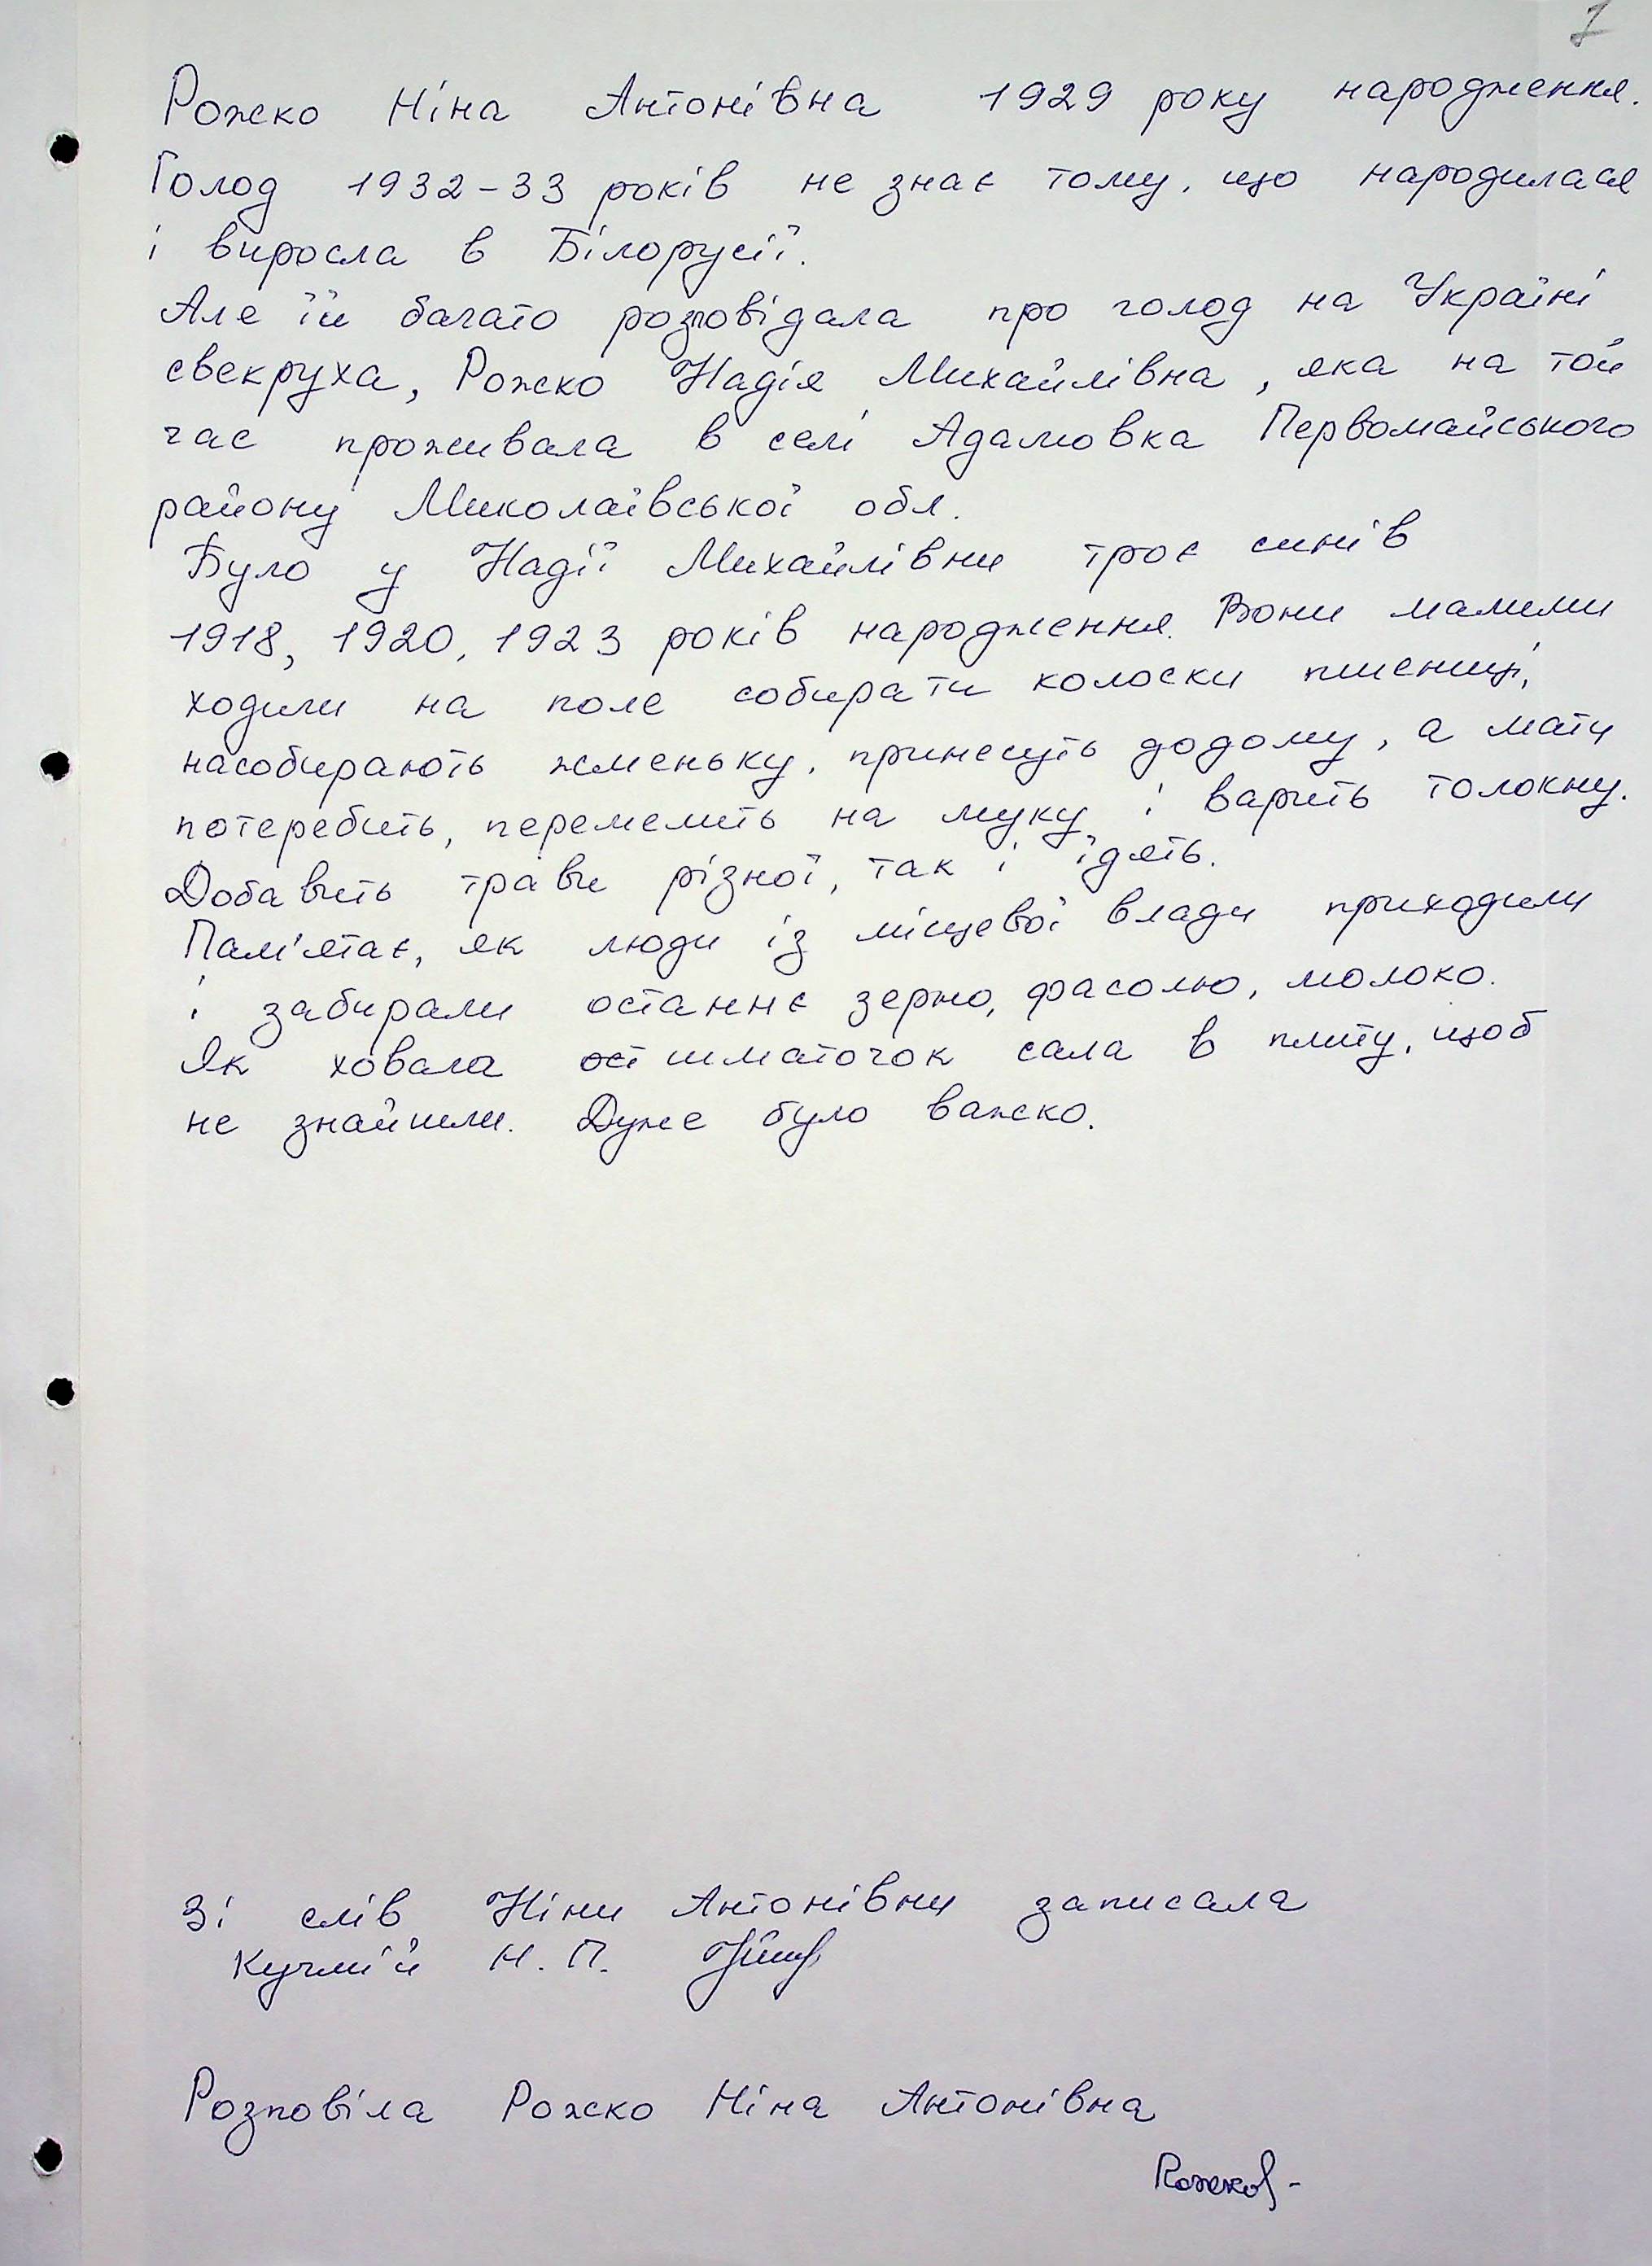 7
Рожко Ніна Антонівна 1929 року народження.
Голод 1932-33 років не знає тому, що народилася
і виросла в Білорусії.
Але їй багато розповідала про голод на Україні
свекруха, Рожко Надія Михайлівна, яка на той
час проживала в селі Адамовка Первомайського
району Миколаївської обл.
Було у Надії Михайлівни троє синів
1918, 1920, 1923 років народження. Вони малими
ходили на поле собирати колоски пшениці,
насобирають жменьку, принесуть додому, а мати
потеребить, перемелить на муку і варить толокну.
Добавить трави різної, так і їдять.
Пам'ятає, як люди із місцевої влади приходили
і забирали останнє зерно, фасолю, молоко.
Як ховала ост шматочок сала в плиту, щоб
не знайшли. Дуже було важко.
Зі слів Ніни Антонівни записала
Кучмій Н. П.
Розповіла Рожко Ніна Антонівна